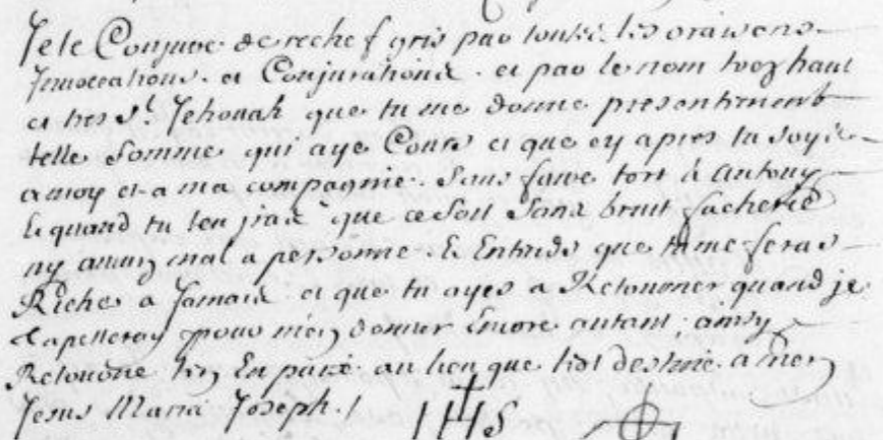 Je te Conjure derechef gris par toutes les oraisons
Invoccations et Conjurations et par le nom trez haut
et tres St. Jehovah que tu me donne presentement
telle somme qui aye Cours et que cy apres tu soye
a moy et a ma compagnie. Sans faire tort à
Et quand tu ten jras que ce soit sans bruit facherie
ny aucun mal a personne. Et Entends que tu me feras
Riche a Jamais et que tu ayes a Retourner quand je
tapelleray pour men donner Encore autant, ainsy
Retourne ten En paix au lieu que test destiné. amen
Jesus Maria Joseph./ IHS